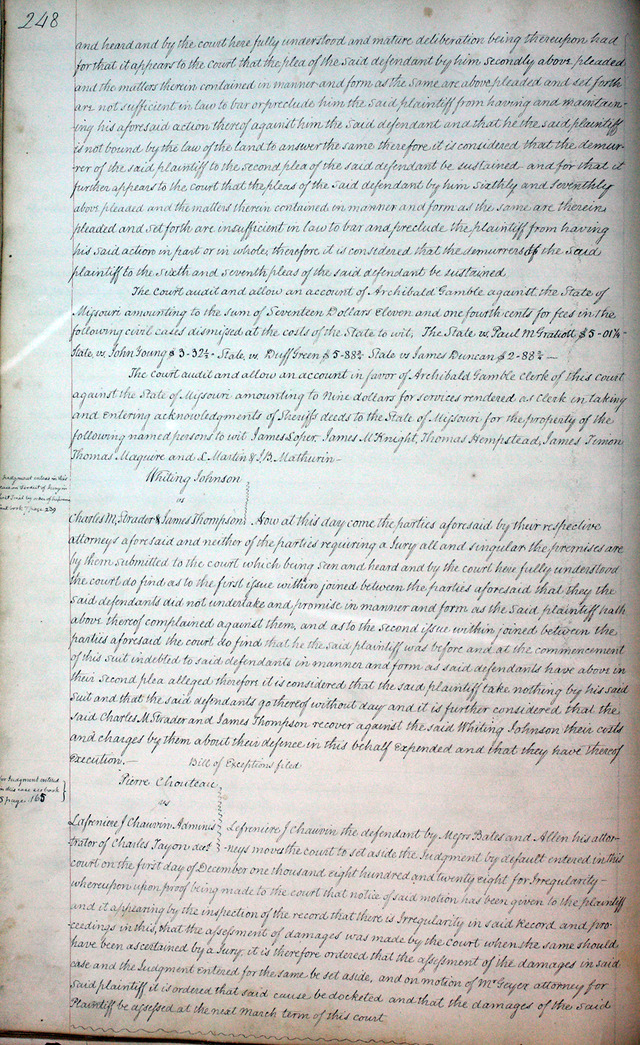 248
and heard and by the court here fully understood and mature deliberation being thereupon had
for that it appears to the court that the plea of the said defendant by him secondly above pleaded
and the matters therein contained in manner and form as the same are above pleaded and set forth
are not sufficient in law to bar or preclude him the said plaintiff from having and maintain-
ing his aforesaid action thereof against him the said defendant and that he the said plaintiff
is not bound by the law of the land to answer the same therefore it is considered that the demur-
rer of the said plaintiff to the second plea of the said defendant be sustained and for that it
further appears to the court that the pleas of the said defendant by him sixthly and seventhly
above pleaded and the matters therein contained in manner and form as the same are therein
pleaded and set forth are insufficient in law to bar and preclude the plaintiff from having
his said action in part or in whole, therefore it is considered that the demurrers of the said
plaintiff to the sixth and seventh pleas of the said defendant be sustained
The court audit and allow an account of Archibald Gamble against the State of
Missouri amounting to the sum of Seventeen Dollars Eleven and one fourth cents for fees in the
following civil cases dismissed at the costs of the State to wit, The State vs. Paul M Gratiott $5-01¼
State, vs. John Young $3-32½- State, vs. Duff Green $5-88¾ State vs James Duncan $2-88¾ —
The court audit and allow an account in favor of Archibald Gamble clerk of this court
against the State of Missouri amounting to Nine dollars for services rendered as Clerk in taking
and entering acknowledgments of Sheriffs deeds to the State of Missouri for the property of the
following named persons to wit James Loper, James McKnight, Thomas Hempstead, James Timon
Thomas Maguire and L. Martin & J.B. Mathurin-
Judgment entered in this
page 239
Whiting Johnson
vs
Charles M, Strader & James Thompson, Now at this day come the parties aforesaid by their respective
attorneys aforesaid and neither of the parties requiring a Jury all and singular the premises are
by them submitted to the court which being seen and heard and by the court here fully understood
the court do find as to the first issue within joined between the parties aforesaid that they the
said defendants did not undertake and promise in manner and form as the said plaintiff hath
above thereof complained against them, and as to the second issue within joined between the
parties aforesaid the court do find that he the said plaintiff was before and at the commencement
of this suit indebted to said defendants in manner and form as said defendants have above in
their second plea alleged therefore it is considered that the said plaintiff take nothing by his said
suit and that the said defendants go thereof without day and it is further considered that the
said Charles M. Strader and James Thompson recover against the said Whiting Johnson their costs
and charges by them about their defence in this behalf expended and that they have thereof
execution.- Bill of Exceptions filed
for Judgment entered
in this case see book
5 page 165
Pierre Chouteau
vs
Lafreniere J Chauvin Adminis Lefreniere J Chauvin the defendant by Messrs Bates and Allen his attor-
trator of Charles Tayon decd neys moves the court to set aside the Judgment by default entered in this
court on the first day of December one thousand eight hundred and twenty eight for Irregularity-
whereupon upon proof being made to the court that notice of said motion has been given to the plaintiff
and it appearing by the inspection of the record that there is Irregularity in said Record and pro-
ceedings in this, that the assessment of damages was made by the Court when the same should
have been ascertained by a Jury, it is therefore ordered that the assessment of the damages in said
case and the Judgment entered for the same be set aside, and on motion of Mr Geyer attorney for
said plaintiff it is ordered that said cause be docketed and that the damages of the said
Plaintiff be assessed at the next March term of this court